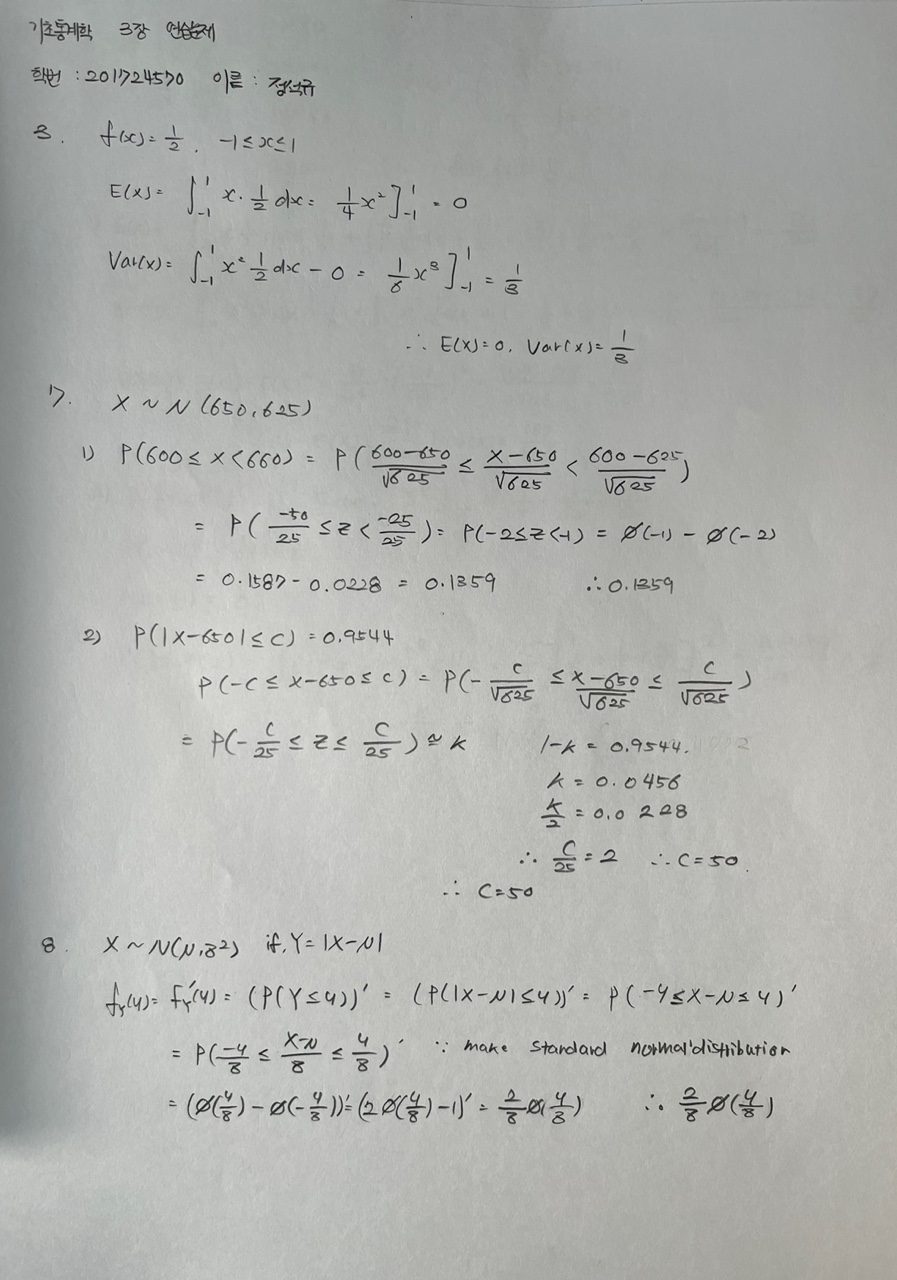 기초통계학 3장 연습문제
학번 : 201724570 이름 : 정석규
3. f(x) = 1/2, -1 ≤ x ≤ 1
E(X) = ∫_{-1}^{1} x · 1/2 dx = 1/4 x² ]_{-1}^{1} = 0
Var(x) = ∫_{-1}^{1} x² 1/2 dx - 0 = 1/6 x³ ]_{-1}^{1} = 1/3
∴ E(X) = 0, Var(x) = 1/3
17. X ~ N(650, 625)
1) P(600 ≤ X < 660) = P( (600-650)/√625 ≤ (X-650)/√625 < (600-625)/√625 )
= P( -50/25 ≤ Z < -25/25 ) = P(-2 ≤ Z < -1) = ø(-1) - ø(-2)
= 0.1587 - 0.0228 = 0.1359 ∴ 0.1359
2) P(|X-650| ≤ C) = 0.9544
P(-C ≤ X-650 ≤ C) = P(- C/√625 ≤ (X-650)/√625 ≤ C/√625 )
= P(- C/25 ≤ Z ≤ C/25 ) ≃ k 1-k = 0.9544.
k = 0.0456
k/2 = 0.0228
∴ C/25 = 2 ∴ C = 50.
∴ C = 50
8. X ~ N(μ, 3²) if, Y = |X-μ|
f_Y(y) = F_Y'(y) = (P(Y ≤ y))' = (P(|X-μ| ≤ y))' = P(-y ≤ X-μ ≤ y)'
= P( -y/3 ≤ (X-μ)/3 ≤ y/3 )' ∵ make standard normal distribution
= (ø(y/3) - ø(-y/3))' = (2ø(y/3) - 1)' = 2/3 ø(y/3) ∴ 2/3 ø(y/3)